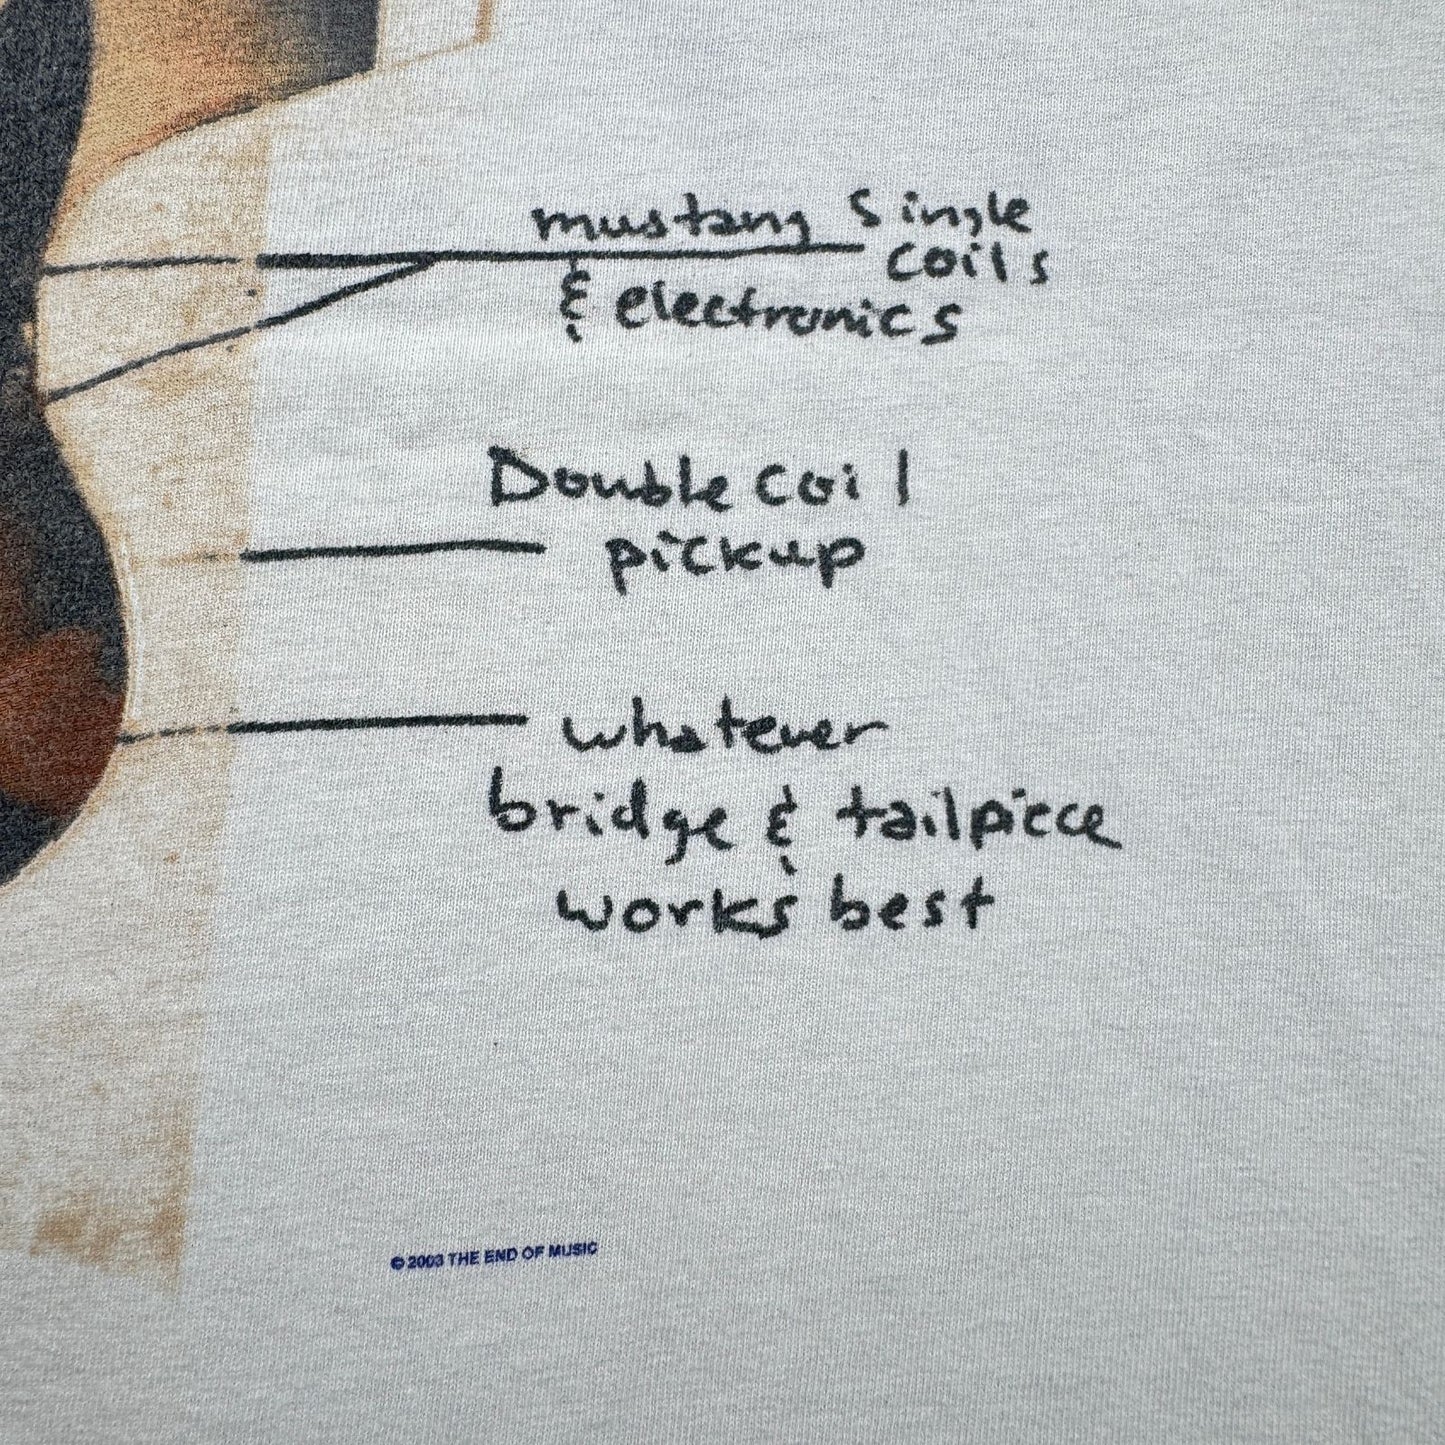 mustang Single
coils
& electronics
Double coil
pickup
whatever
bridge & tailpiece
works best
© 2003 THE END OF MUSIC